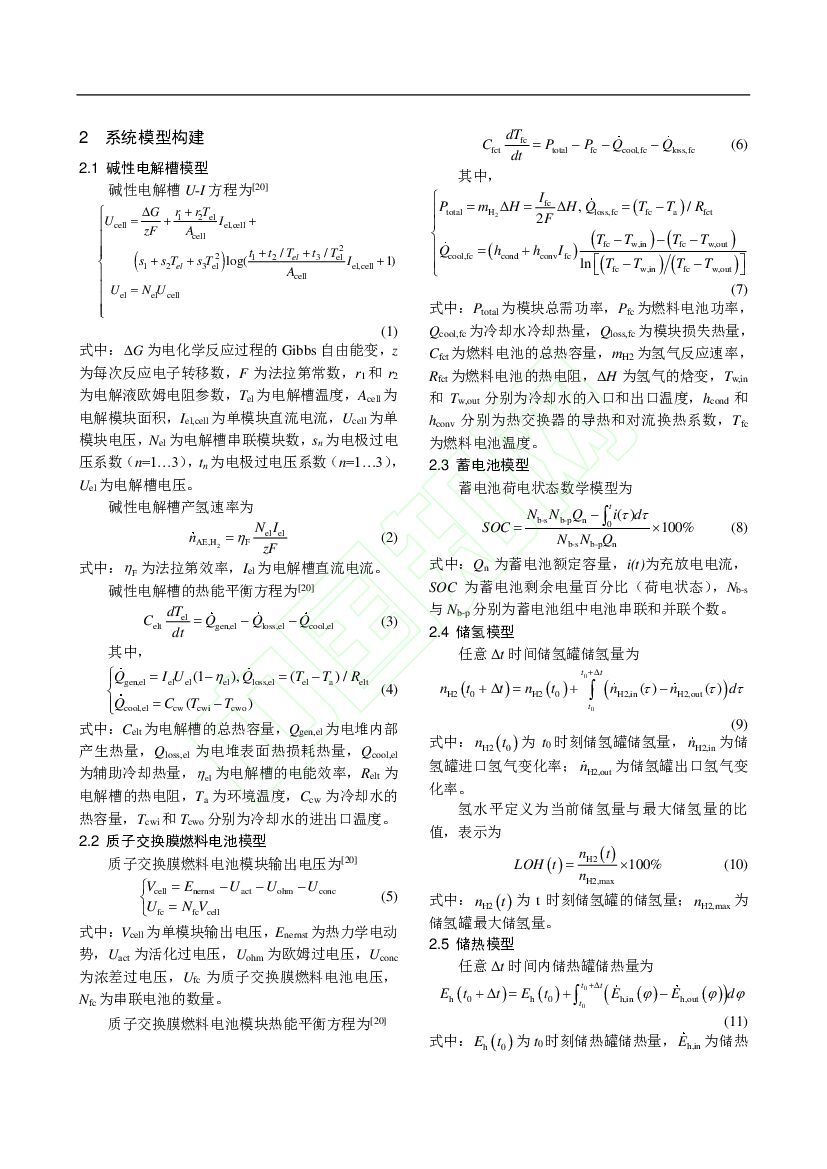 2 系统模型构建
2.1 碱性电解槽模型
碱性电解槽 U-I 方程为[20]
{ U_cell = ΔG/(zF) + (r_1 + r_2 T_el)/A_cell I_el,cell +
(s_1 + s_2 T_el + s_3 T_el^2) log((t_1 + t_2 / T_el + t_3 / T_el^2)/A_cell I_el,cell + 1)
U_el = N_el U_cell
(1)
式中：ΔG 为电化学反应过程的 Gibbs 自由能变，z
为每次反应电子转移数，F 为法拉第常数，r1 和 r2
为电解液欧姆电阻参数，Tel为电解槽温度，Acell 为
电解模块面积，Iel,cell 为单模块直流电流，Ucell 为单
模块电压，Nel 为电解槽串联模块数，sn 为电极过电
压系数（n=1…3），tn 为电极过电压系数（n=1…3），
Uel 为电解槽电压。
碱性电解槽产氢速率为
ṅ_AE,H2 = η_F N_el I_el/(zF) (2)
式中：η_F 为法拉第效率，Iel 为电解槽直流电流。
碱性电解槽的热能平衡方程为[20]
C_elt dT_el/dt = Q̇_gen,el − Q̇_loss,el − Q̇_cool,el (3)
其中，
{ Q̇_gen,el = I_el U_el (1− η_el), Q̇_loss,el = (T_el − T_a) / R_elt
Q̇_cool,el = C_cw (T_cwi − T_cwo) (4)
式中：Celt 为电解槽的总热容量，Qgen,el 为电堆内部
产生热量，Qloss,el 为电堆表面热损耗热量，Qcool,el
为辅助冷却热量，η_el 为电解槽的电能效率，Relt 为
电解槽的热电阻，Ta 为环境温度，Ccw 为冷却水的
热容量，Tcwi 和 Tcwo 分别为冷却水的进出口温度。
2.2 质子交换膜燃料电池模型
质子交换膜燃料电池模块输出电压为[20]
{ V_cell = E_nernst − U_act − U_ohm − U_conc
U_fc = N_fc V_cell (5)
式中：Vcell 为单模块输出电压，Enernst 为热力学电动
势，Uact 为活化过电压，Uohm 为欧姆过电压，Uconc
为浓差过电压，Ufc 为质子交换膜燃料电池电压，
Nfc 为串联电池的数量。
质子交换膜燃料电池模块热能平衡方程为[20]
C_fct dT_fc/dt = P_total − P_fc − Q̇_cool,fc − Q̇_loss,fc (6)
其中，
{ P_total = m_H2 ΔH = I_fc/(2F) ΔH, Q̇_loss,fc = (T_fc − T_a) / R_fct
Q̇_cool,fc = (h_cond + h_conv I_fc) ((T_fc − T_w,in) − (T_fc − T_w,out))/ln[(T_fc − T_w,in)/(T_fc − T_w,out)]
(7)
式中：Ptotal 为模块总需功率，Pfc 为燃料电池功率，
Qcool,fc 为冷却水冷却热量，Qloss,fc 为模块损失热量，
Cfct 为燃料电池的总热容量，mH2 为氢气反应速率，
Rfct 为燃料电池的热电阻，ΔH 为氢气的焓变，Tw,in
和 Tw,out 分别为冷却水的入口和出口温度，hcond 和
hconv 分别为热交换器的导热和对流换热系数，Tfc
为燃料电池温度。
2.3 蓄电池模型
蓄电池荷电状态数学模型为
SOC = (N_b-s N_b-p Q_n − ∫_0^t i(τ)dτ)/(N_b-s N_b-p Q_n) ×100% (8)
式中：Qn 为蓄电池额定容量，i(t)为充放电电流，
SOC 为蓄电池剩余电量百分比（荷电状态），Nb-s
与 Nb-p 分别为蓄电池组中电池串联和并联个数。
2.4 储氢模型
任意 Δt 时间储氢罐储氢量为
n_H2 (t_0 + Δt) = n_H2 (t_0) + ∫_{t_0}^{t_0+Δt} (ṅ_H2,in (τ) − ṅ_H2,out (τ)) dτ
(9)
式中：n_H2 (t_0) 为 t0 时刻储氢罐储氢量，ṅ_H2,in 为储
氢罐进口氢气变化率；ṅ_H2,out 为储氢罐出口氢气变
化率。
氢水平定义为当前储氢量与最大储氢量的比
值，表示为
LOH (t) = n_H2 (t)/n_H2,max ×100% (10)
式中：n_H2 (t) 为 t 时刻储氢罐的储氢量；n_H2,max 为
储氢罐最大储氢量。
2.5 储热模型
任意 Δt 时间内储热罐储热量为
E_h (t_0 + Δt) = E_h (t_0) + ∫_{t_0}^{t_0+Δt} (Ė_h,in (φ) − Ė_h,out (φ)) dφ
(11)
式中：E_h (t_0) 为 t0 时刻储热罐储热量，Ė_h,in 为储热
中国知网